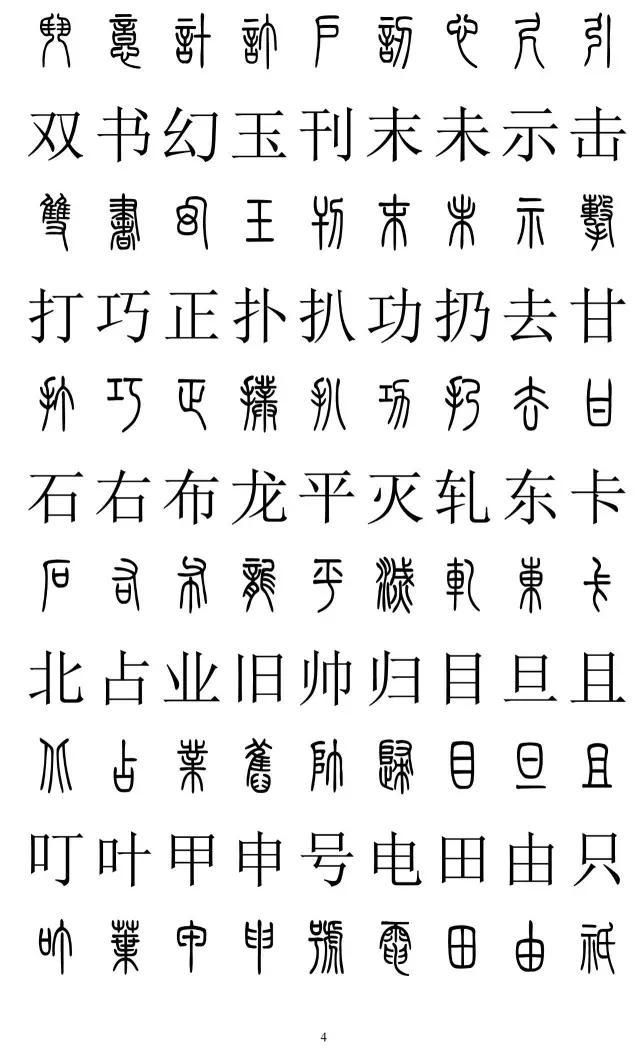 意計訂戶認心尺引
双书幻玉刊末未示击
雙書幻玉刊末未示擊
打巧正扑扒功扔去甘
打巧正撲扒功扔去甘
石右布龙平灭轧东卡
石右布龍平滅軋東卡
北占业旧帅归目旦且
北占業舊帥歸目旦且
叮叶甲申号电田由只
叮葉甲申號電田由祇
4